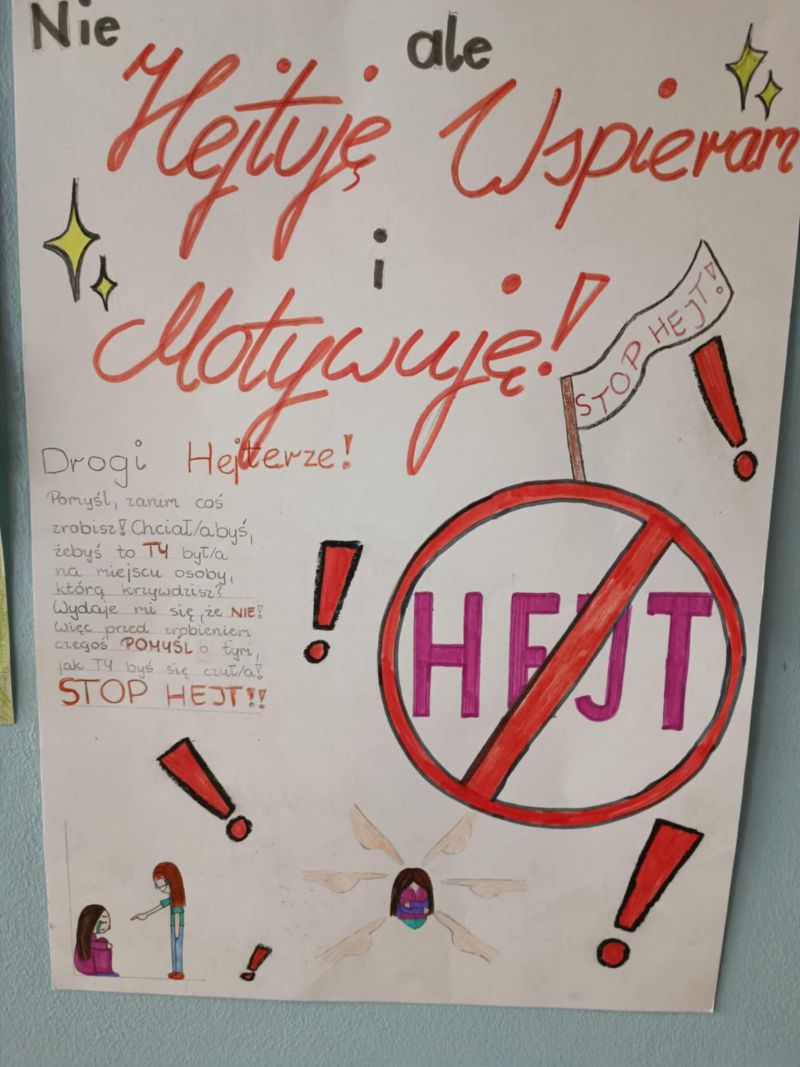 Nie ale
Hejtuję Wspieram
i
Motywuję!
STOP HEJT!
Drogi Hejterze!
Pomyśl, zanim coś
zrobisz! Chciał/abyś,
żebyś to TY był/a
na miejscu osoby,
którą krzywdzisz?
Wydaje mi się, że NIE!
Więc przed zrobieniem
czegoś POMYŚL o tym,
jak TY byś się czuł/a!
STOP HEJT!!
HEJT